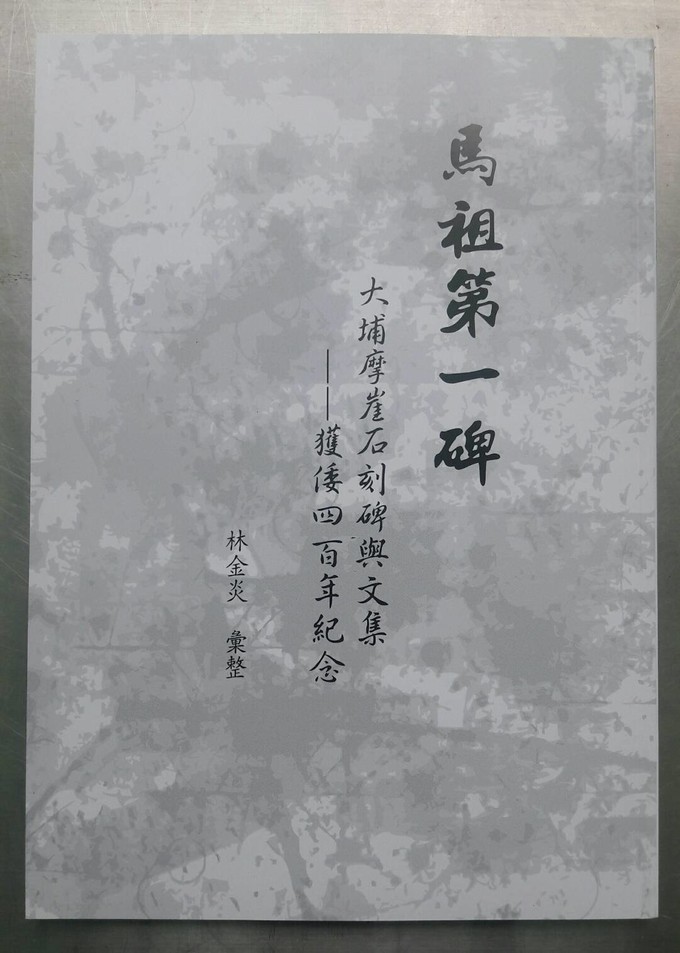 馬祖第一碑
大埔摩崖石刻碑與文集
——獲倭四百年紀念
林金炎 彙整